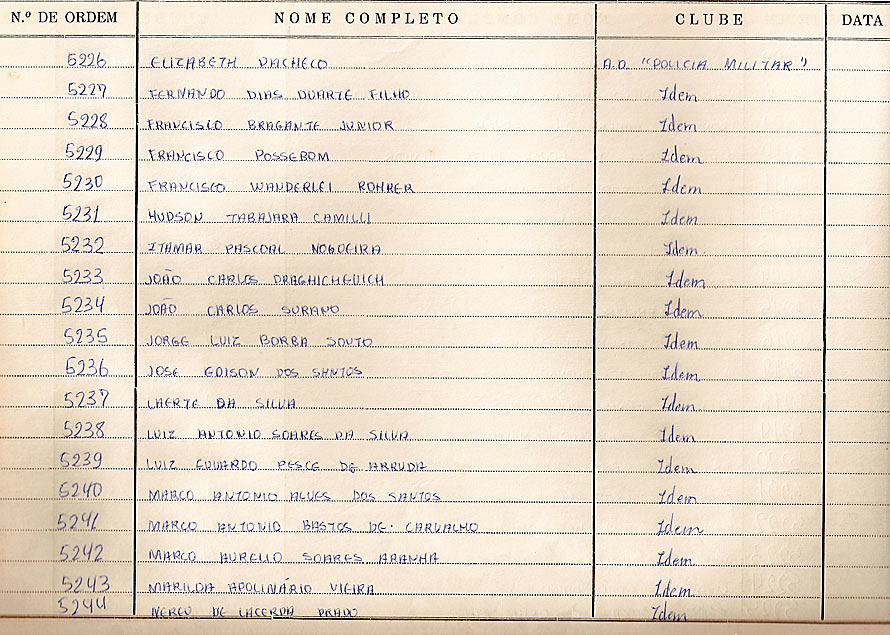 N.º DE ORDEM NOME COMPLETO CLUBE DATA
5226 ELIZABETH PACHECO A.D. "POLICIA MILITAR"
5227 FERNANDO DIAS DUARTE FILHO Idem
5228 FRANCISCO BRAGANTE JUNIOR Idem
5229 FRANCISCO POSSEBOM Idem
5230 FRANCISCO WANDERLEI ROHRER Idem
5231 HUDSON TABAJARA CAMILLI Idem
5232 ITAMAR PASCOAL NOGUEIRA Idem
5233 JOÃO CARLOS DRAGHICHEVICH Idem
5234 JOÃO CARLOS SURANO Idem
5235 JORGE LUIZ BORBA SOUTO Idem
5236 JOSE EDISON DOS SANTOS Idem
5237 LAERTE DA SILVA Idem
5238 LUIZ ANTONIO SOARES DA SILVA Idem
5239 LUIZ EDUARDO PESCE DE ARRUDA Idem
5240 MARCO ANTONIO ALVES DOS SANTOS Idem
5241 MARCO ANTONIO BASTOS DE CARVALHO Idem
5242 MARCO AURELIO SOARES ARANHA Idem
5243 MARILDA APOLINÁRIO VIEIRA Idem
5244 DE LACERDA PRADO Idem